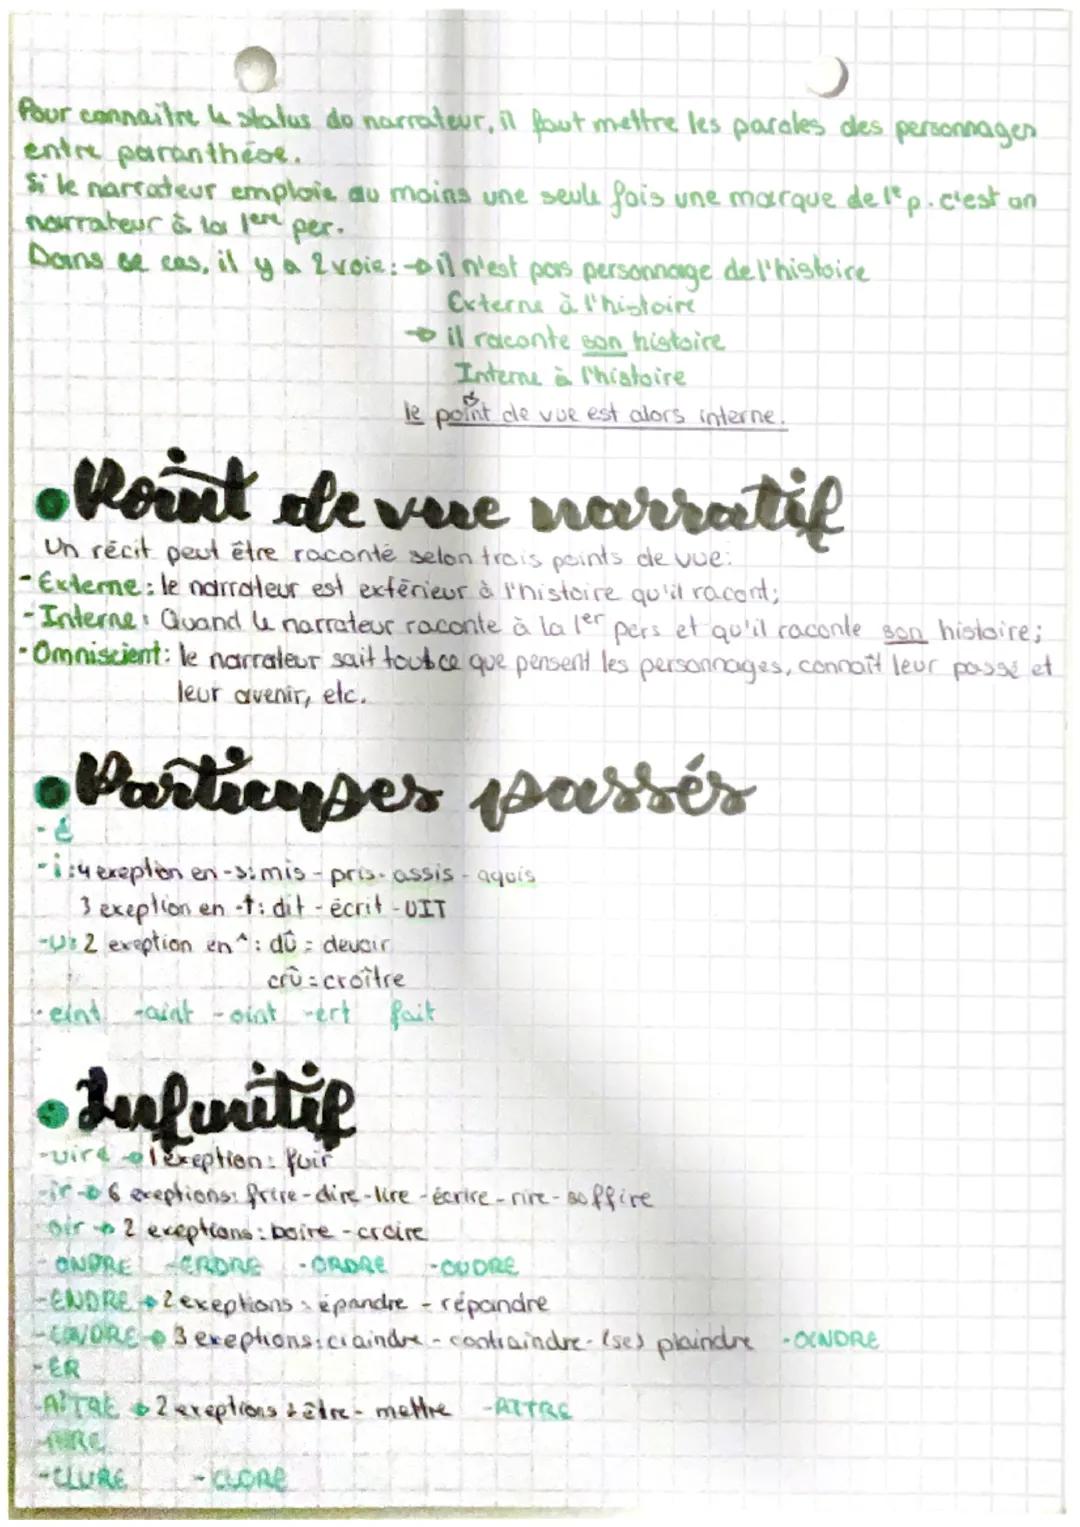 Pour connaitre le status du narrateur, il faut mettre les paroles des personnages
entre paranthése.
Si le narrateur emploie au moins une seule fois une marque de 1e p. c'est un
narrateur à la 1ere per.
Dans ce cas, il y a 2 voie: → il n'est pas personnage de l'histoire
Externe à l'histoire
→ il raconte son histoire
Interne à l'histoire
le point de vue est alors interne.
• Point de vue narratif
Un récit peut être raconté selon trois points de vue:
- Externe: le narrateur est extérieur à l'histoire qu'il racont;
- Interne: Quand le narrateur raconte à la 1er pers et qu'il raconte son histoire;
- Omniscient: le narrateur sait tout ce que pensent les personnages, connaît leur passé et
leur avenir, etc.
• Participes passés
- é
- i: 4 exeption en -s: mis - pris - assis - aquis
3 exeption en -t: dit - écrit - UIT
- U: 2 exeption en ^: dû = devoir
crû = croître
- eint - aint - oint - ert fait
• Infinitif
- uire → 1 exeption: fuir
- ir → 6 exeptions: frire - dire - lire - écrire - rire - suffire
- oir → 2 exeptions: boire - croire
- ONDRE - ERDRE - ORDRE - OUDRE
- ENDRE → 2 exeptions: épandre - répandre
- EINDRE → 3 exeptions: craindre - contraindre - (se) plaindre - OINDRE
- ER
- AÎTRE → 2 exeptions: être - mettre - ATTRE
- AIRE
- CLURE - CLORE